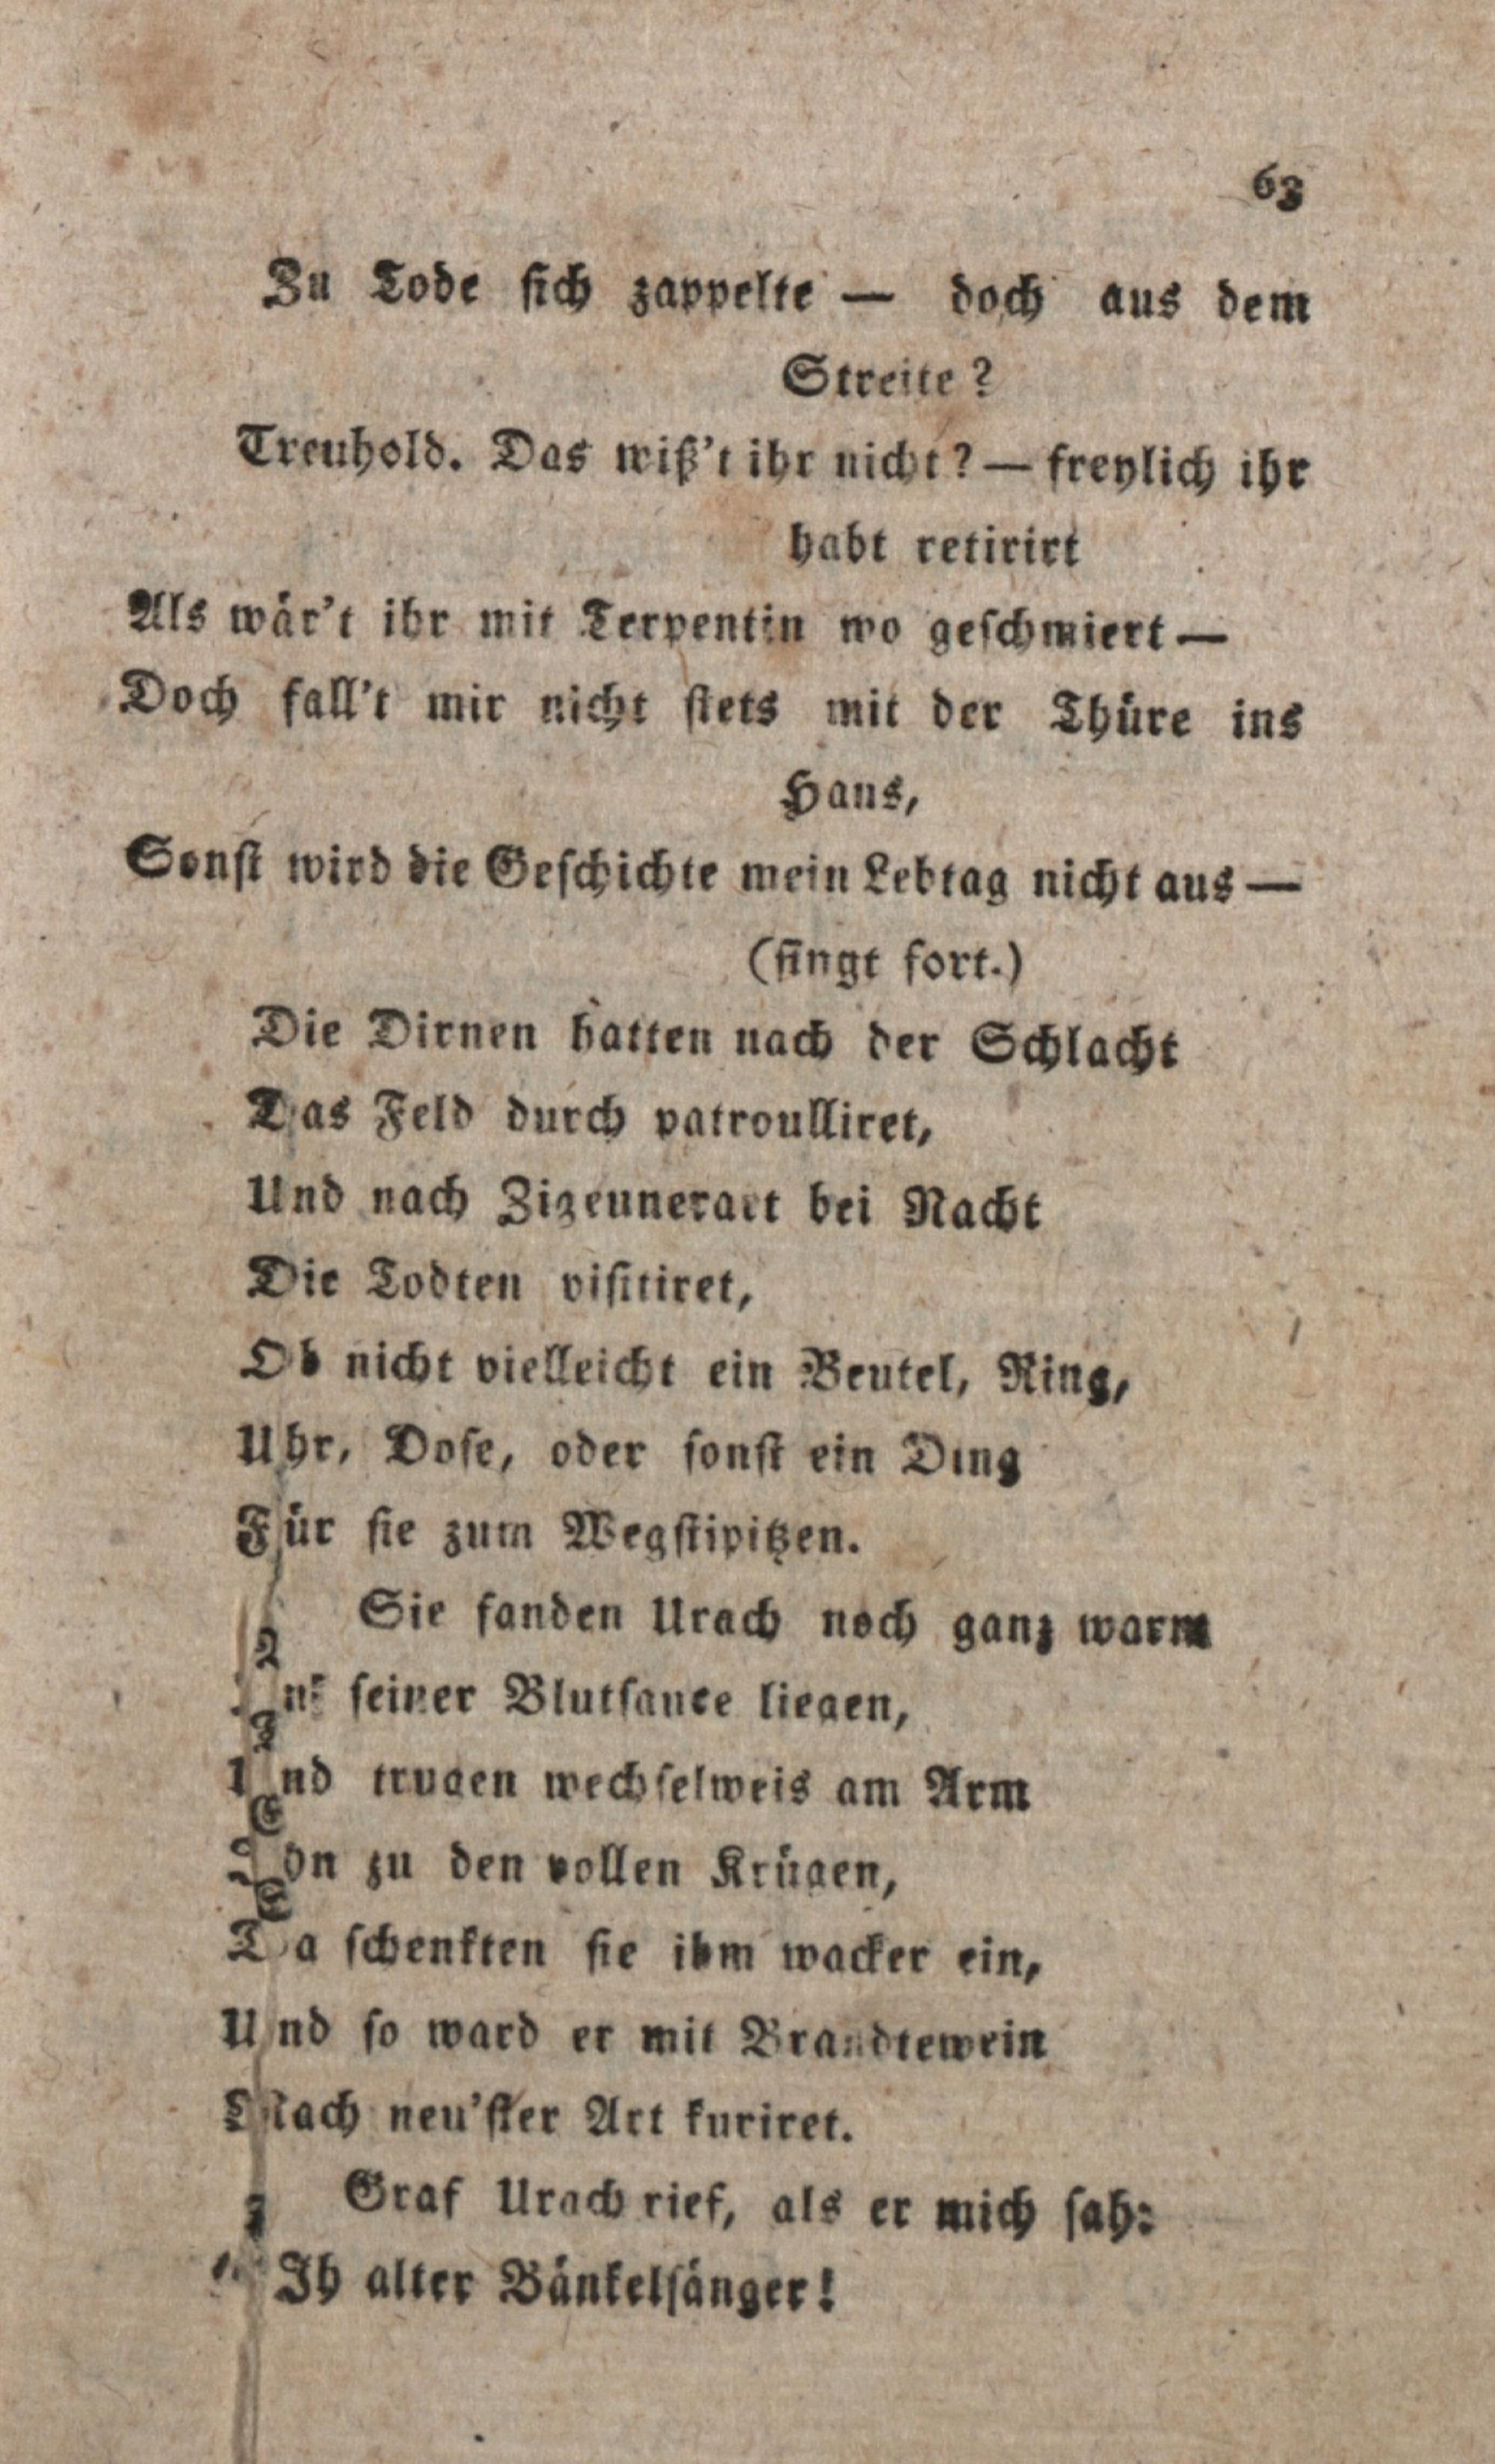 63
Zu Tode sich zappelte — doch aus dem
Streite?
Treuhold. Das wiß't ihr nicht? — freylich ihr
habt retirirt
Als wär't ihr mit Terpentin wo geschmiert —
Doch fall't mir nicht stets mit der Thüre ins
Haus,
Sonst wird die Geschichte mein Lebtag nicht aus —
(singt fort.)
Die Dirnen hatten nach der Schlacht
Das Feld durch patroulliret,
Und nach Zigeunerart bei Nacht
Die Todten visitiret,
Ob nicht vielleicht ein Beutel, Ring,
Uhr, Dose, oder sonst ein Ding
Für sie zum Wegstipitzen.
Sie fanden Urach noch ganz warm
seiner Blutsauce liegen,
Und trugen wechselweis am Arm
zu den vollen Krügen,
Da schenkten sie ihm wacker ein,
Und so ward er mit Brandtewein
Nach neu'ster Art kuriret.
Graf Urach rief, als er mich sah:
Ih alter Bänkelsänger!